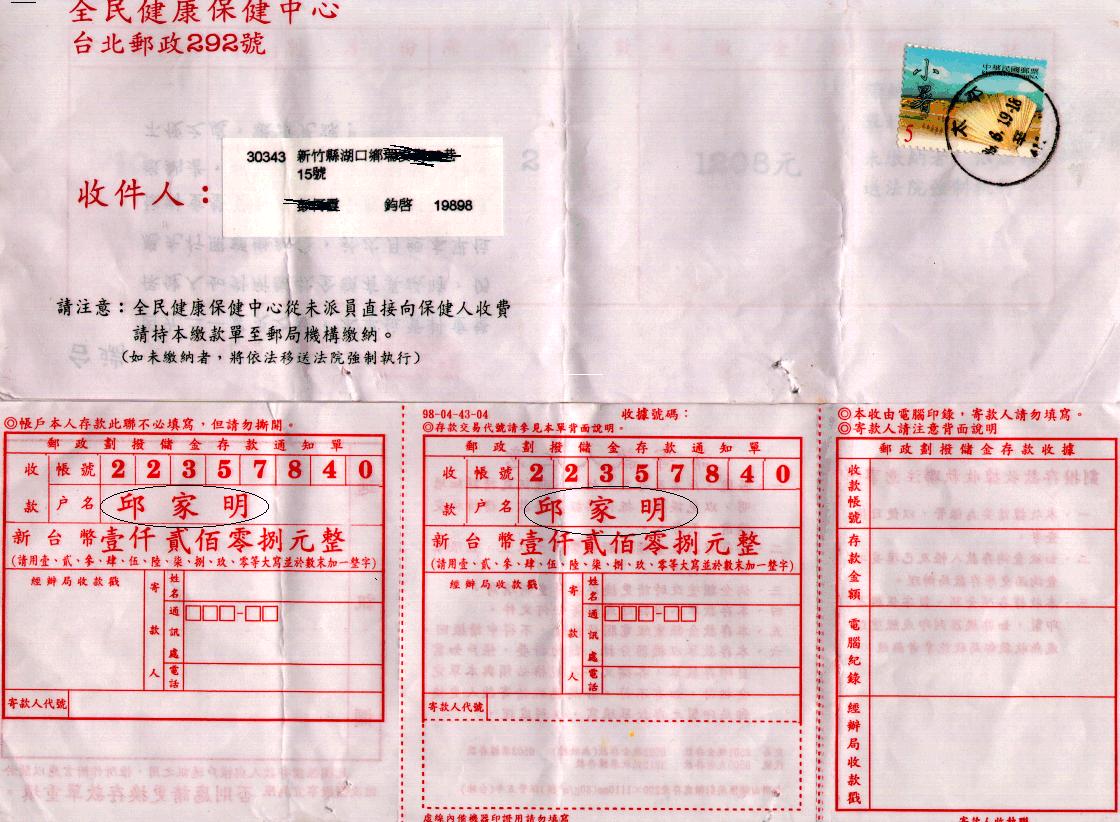 全民健康保健中心
台北郵政292號
小暑
中華民國郵票
5
30343 新竹縣湖口鄉
巷
15號
收件人：
鈞啓 19898
請注意：全民健康保健中心從未派員直接向保健人收費
請持本繳款單至郵局機構繳納。
（如未繳納者，將依法移送法院強制執行）
◎帳戶本人存款此聯不必填寫，但請勿撕開。
郵政劃撥儲金存款通知單
收款
帳號 22357840
戶名 邱家明
新台幣壹仟貳佰零捌元整
(請用壹、貳、參、肆、伍、陸、柒、捌、玖、零等大寫並於數末加一整字)
經辦局收款戳
寄款人
姓名
通訊處
電話
寄款人代號
98-04-43-04
收據號碼：
◎存款交易代號請參見本單背面說明。
郵政劃撥儲金存款通知單
收款
帳號 22357840
戶名 邱家明
新台幣壹仟貳佰零捌元整
(請用壹、貳、參、肆、伍、陸、柒、捌、玖、零等大寫並於數末加一整字)
經辦局收款戳
寄款人
姓名
通訊處
電話
寄款人代號
虛線內備機器印證用請勿填寫
◎本收由電腦印錄，寄款人請勿填寫。
◎寄款人請注意背面說明
郵政劃撥儲金存款收據
收款帳號
存款金額
電腦紀錄
經辦局收款戳